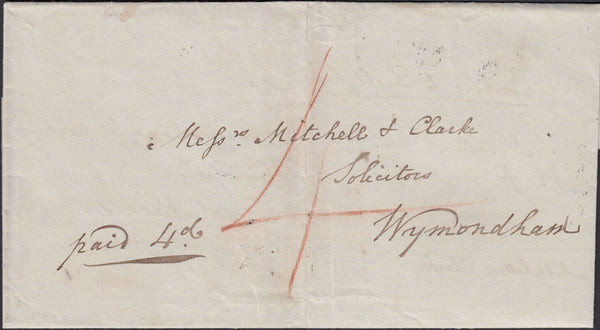 Mefsrs. Mitchell & Clarke
Solicitors
Wymondham
paid 4d
4